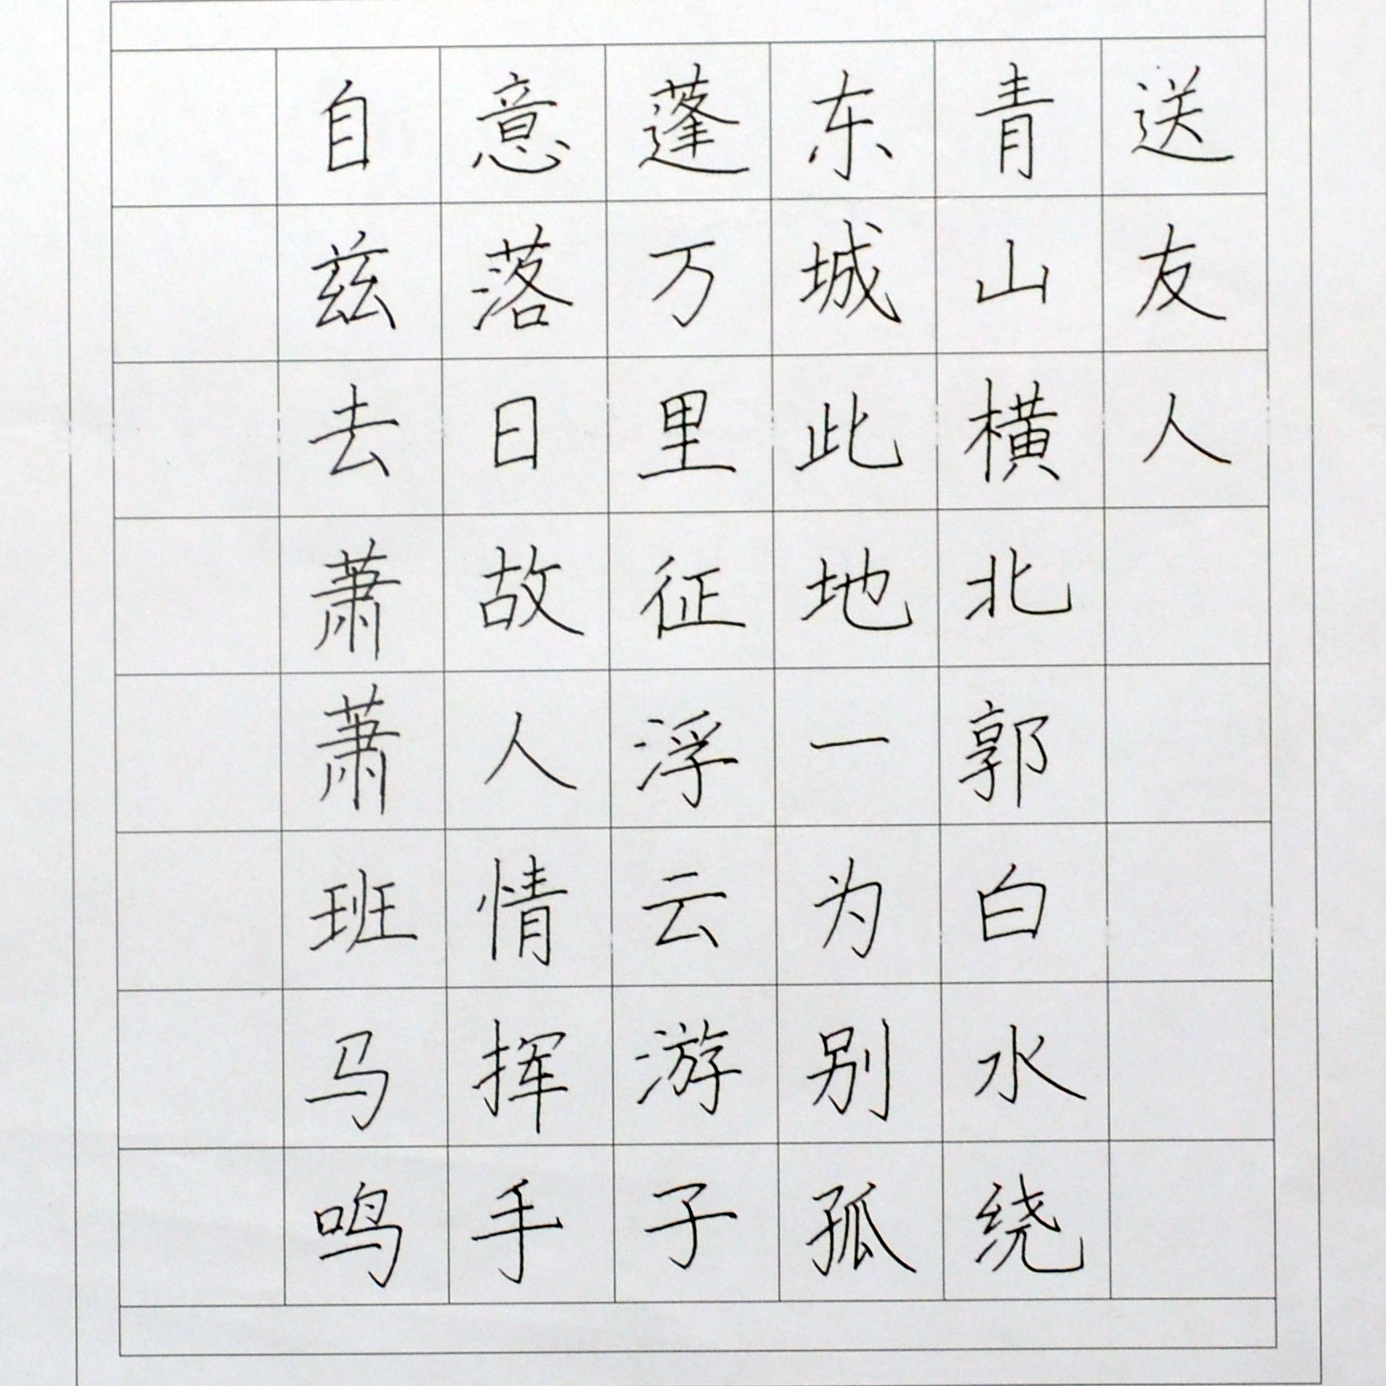 送友人
青山横北郭白水绕
东城此地一为别孤
蓬万里征浮云游子
意落日故人情挥手
自兹去萧萧班马鸣